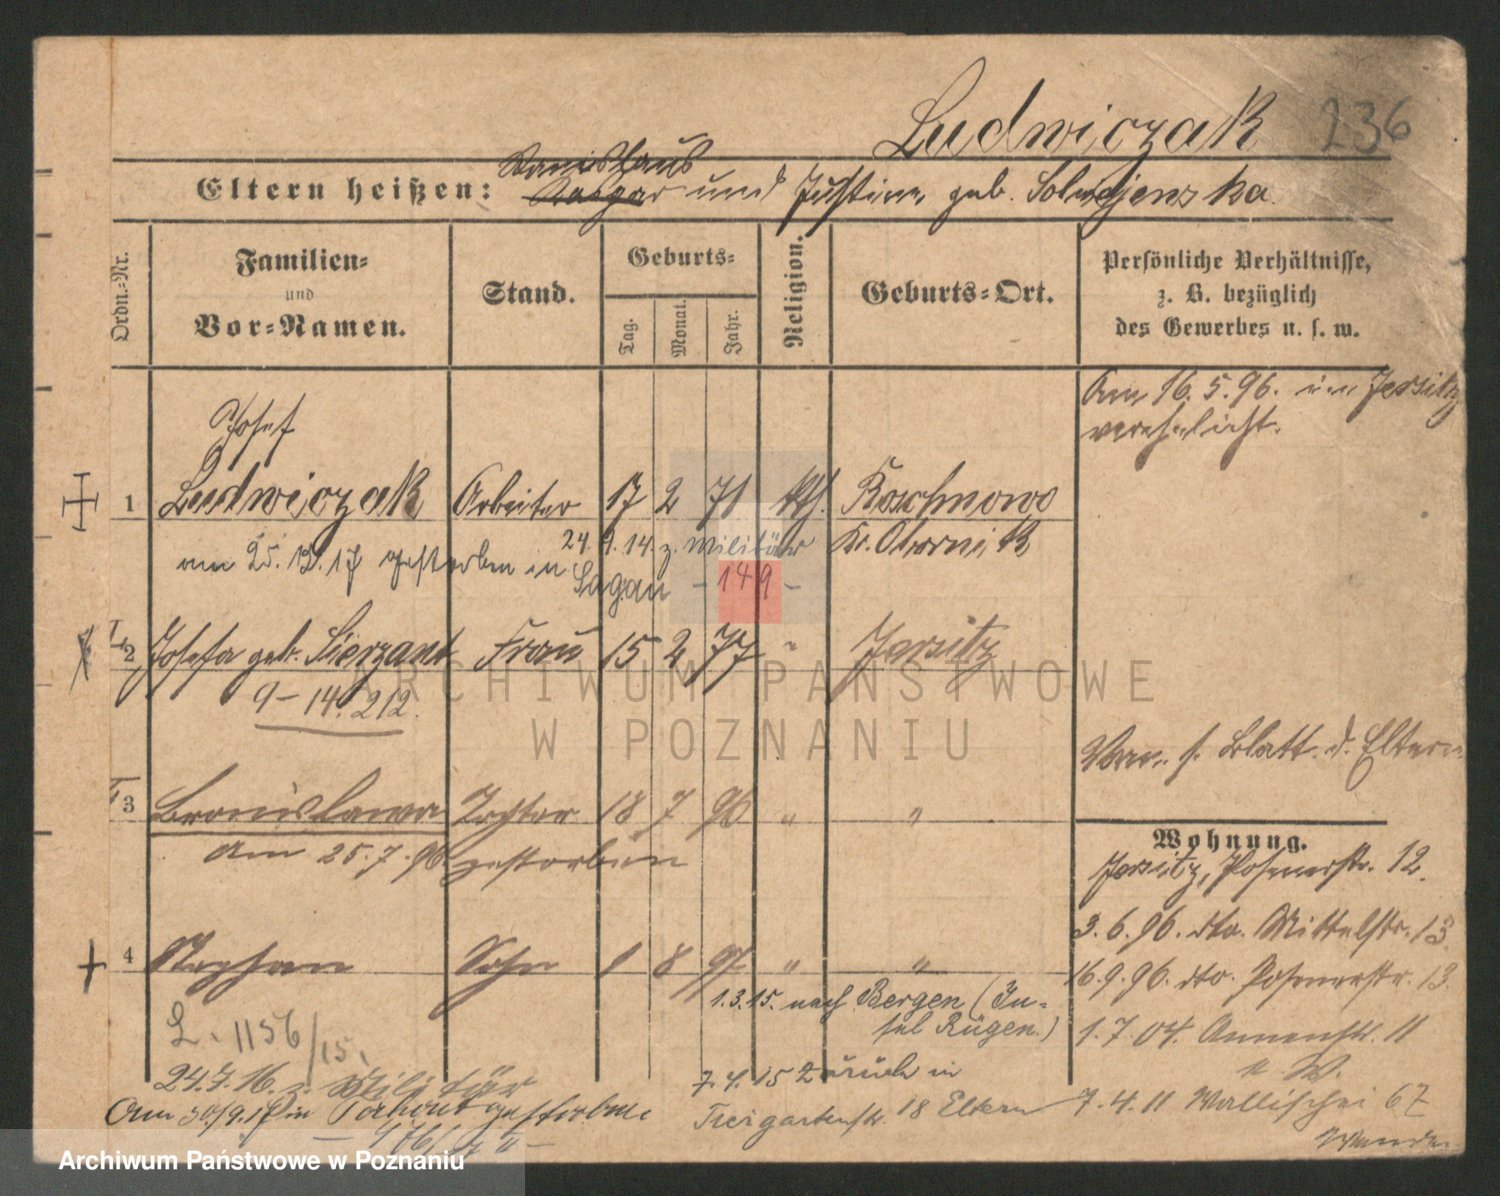 Ludwiczak 236
Stanislaus
Eltern heißen: Kaspar und Justine, geb. Solmajenska.
Ordn.-Nr.
Familien-
und
Vor-Namen.
Stand.
Geburts-
Tag.
Monat.
Jahr.
Religion.
Geburts-Ort.
Persönliche Verhältnisse,
z. B. bezüglich
des Gewerbes u. s. w.
Am 16.5.96. in Jersitz
verehelicht.
Josef
1 Ludwiczak Arbeiter 17 2 71 kth. Boschnowo
24.9.14. z. Militär Kr. Obornik
am 25.12.17 gestorben in
Sagan - 149 -
2 Josefa geb. Sierzant Frau 15 2 77 " Jersitz
9-14.212.
Vorn. s. Blatt d. Eltern
3 Bronislawa Tochter 18 7 96 " "
am 25.7.96 gestorben
Wohnung.
Jersitz, Posenerstr. 12.
3.6.96. dto. Mittelstr. 13.
4 Stephan Sohn 1 8 97 " "
16.9.96. dto. Posenerstr. 13.
1.3.15. nach Bergen (In-
sel Rügen.)
L. 1156/15.
1.7.04. Annenstr. 11
24.7.16. z. Militär
7.4.15 zurück in
Tiergartenstr. 18 Eltern
7.4.11 Wallischei 67
Am 30/9.17 in gestorben
ARCHIWUM PAŃSTWOWE
W POZNANIU
Archiwum Państwowe w Poznaniu